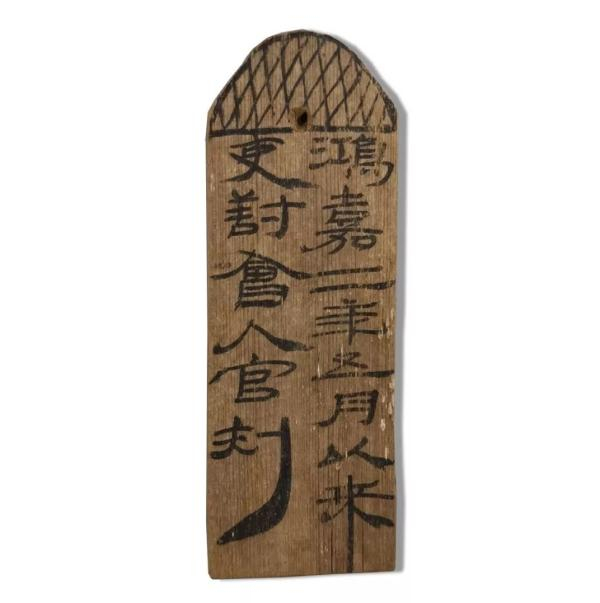 鴻嘉二年五月以来
吏對會入官刺